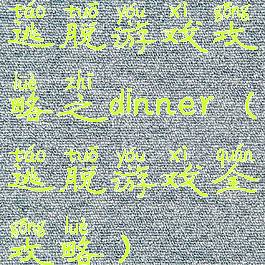 táo tuō yóu xì gōng
逃脱游戏攻
lüè zhī
略之dinner（
táo tuō yóu xì quán
逃脱游戏全
gōng lüè
攻略）